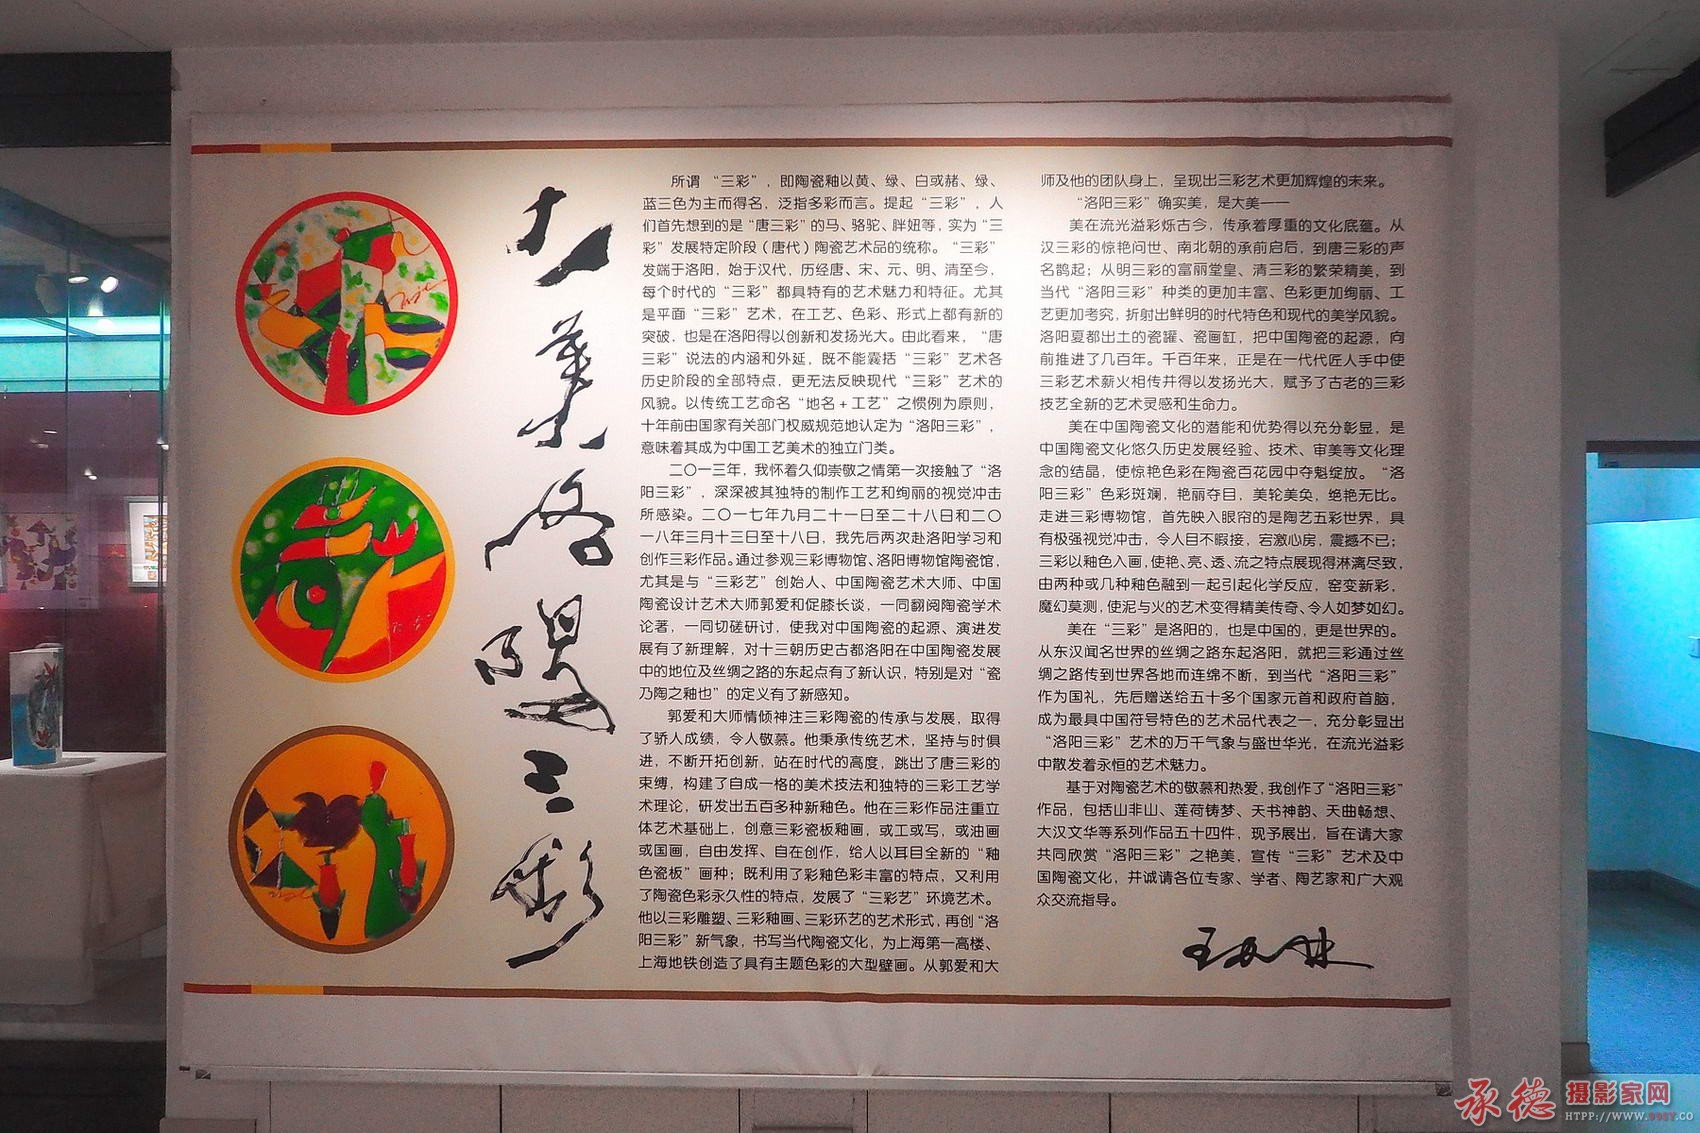 大美洛阳三彩
所谓“三彩”，即陶瓷釉以黄、绿、白或赭、绿、
蓝三色为主而得名，泛指多彩而言。提起“三彩”，人
们首先想到的是“唐三彩”的马、骆驼、胖妞等，实为“三
彩”发展特定阶段（唐代）陶瓷艺术品的统称。“三彩”
发端于洛阳，始于汉代，历经唐、宋、元、明、清至今，
每个时代的“三彩”都具特有的艺术魅力和特征。尤其
是平面“三彩”艺术，在工艺、色彩、形式上都有新的
突破，也是在洛阳得以创新和发扬光大。由此看来，“唐
三彩”说法的内涵和外延，既不能囊括“三彩”艺术各
历史阶段的全部特点，更无法反映现代“三彩”艺术的
风貌。以传统工艺命名“地名+工艺”之惯例为原则，
十年前由国家有关部门权威规范地认定为“洛阳三彩”，
意味着其成为中国工艺美术的独立门类。
二〇一三年，我怀着久仰崇敬之情第一次接触了“洛
阳三彩”，深深被其独特的制作工艺和绚丽的视觉冲击
所感染。二〇一七年九月二十一日至二十八日和二〇
一八年三月十三日至十八日，我先后两次赴洛阳学习和
创作三彩作品。通过参观三彩博物馆、洛阳博物馆陶瓷馆，
尤其是与“三彩艺”创始人、中国陶瓷艺术大师、中国
陶瓷设计艺术大师郭爱和促膝长谈，一同翻阅陶瓷学术
论著，一同切磋研讨，使我对中国陶瓷的起源、演进发
展有了新理解，对十三朝历史古都洛阳在中国陶瓷发展
中的地位及丝绸之路的东起点有了新认识，特别是对“瓷
乃陶之釉也”的定义有了新感知。
郭爱和大师情倾神注三彩陶瓷的传承与发展，取得
了骄人成绩，令人敬慕。他秉承传统艺术，坚持与时俱
进，不断开拓创新，站在时代的高度，跳出了唐三彩的
束缚，构建了自成一格的美术技法和独特的三彩工艺学
术理论，研发出五百多种新釉色。他在三彩作品注重立
体艺术基础上，创意三彩瓷板釉画，或工或写，或油画
或国画，自由发挥、自在创作，给人以耳目全新的“釉
色瓷板”画种；既利用了彩釉色彩丰富的特点，又利用
了陶瓷色彩永久性的特点，发展了“三彩艺”环境艺术。
他以三彩雕塑、三彩釉画、三彩环艺的艺术形式，再创“洛
阳三彩”新气象，书写当代陶瓷文化，为上海第一高楼、
上海地铁创造了具有主题色彩的大型壁画。从郭爱和大
师及他的团队身上，呈现出三彩艺术更加辉煌的未来。
“洛阳三彩”确实美，是大美——
美在流光溢彩烁古今，传承着厚重的文化底蕴。从
汉三彩的惊艳问世、南北朝的承前启后，到唐三彩的声
名鹊起；从明三彩的富丽堂皇、清三彩的繁荣精美，到
当代“洛阳三彩”种类的更加丰富、色彩更加绚丽、工
艺更加考究，折射出鲜明的时代特色和现代的美学风貌。
洛阳夏都出土的瓷罐、瓷画缸，把中国陶瓷的起源，向
前推进了几百年。千百年来，正是在一代代匠人手中使
三彩艺术薪火相传并得以发扬光大，赋予了古老的三彩
技艺全新的艺术灵感和生命力。
美在中国陶瓷文化的潜能和优势得以充分彰显，是
中国陶瓷文化悠久历史发展经验、技术、审美等文化理
念的结晶，使惊艳色彩在陶瓷百花园中夺魁绽放。“洛
阳三彩”色彩斑斓，艳丽夺目，美轮美奂，绝艳无比。
走进三彩博物馆，首先映入眼帘的是陶艺五彩世界，具
有极强视觉冲击，令人目不暇接，宕激心房，震撼不已；
三彩以釉色入画，使艳、亮、透、流之特点展现得淋漓尽致，
由两种或几种釉色融到一起引起化学反应，窑变新彩，
魔幻莫测，使泥与火的艺术变得精美传奇、令人如梦如幻。
美在“三彩”是洛阳的，也是中国的，更是世界的。
从东汉闻名世界的丝绸之路东起洛阳，就把三彩通过丝
绸之路传到世界各地而连绵不断，到当代“洛阳三彩”
作为国礼，先后赠送给五十多个国家元首和政府首脑，
成为最具中国符号特色的艺术品代表之一，充分彰显出
“洛阳三彩”艺术的万千气象与盛世华光，在流光溢彩
中散发着永恒的艺术魅力。
基于对陶瓷艺术的敬慕和热爱，我创作了“洛阳三彩”
作品，包括山非山、莲荷铸梦、天书神韵、天曲畅想、
大汉文华等系列作品五十四件，现予展出，旨在请大家
共同欣赏“洛阳三彩”之艳美，宣传“三彩”艺术及中
国陶瓷文化，并诚请各位专家、学者、陶艺家和广大观
众交流指导。
承德摄影家网